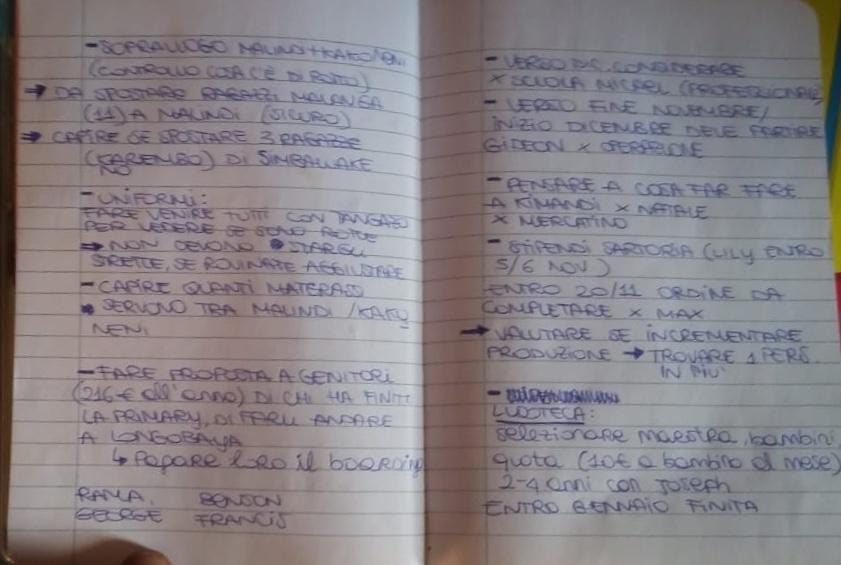 - SOPRALLUOGO MALINDI + KAKUNENI
(CONTROLLO COSA C'È DI POSTO)
→ DA SPOSTARE RAGAZZI MALANGA
(11) A MALINDI (SICURO)
→ CAPIRE SE SPOSTARE 3 RAGAZZE
(KAREMBO) DI SIMBAWAKE
NO
- UNIFORMI:
FARE VENIRE TUTTI CON TANGAZO
PER VEDERE SE SONO ROTTE
→ NON DEVONO STARGLI
STRETTE, SE ROVINATE AGGIUSTARE
- CAPIRE QUANTI MATERASSI
SERVONO TRA MALINDI / KAKU
NENI
- FARE PROPOSTA A GENITORI
(216 € all'anno) DI CHI HA FINITO
LA PRIMARY, DI FARLI ANDARE
A LONGOBAYA
↳ Pagare loro il boarding
RAMA. BENSON
GEORGE FRANCIS
- VERSO DIC. CONSIDERARE
X SCUOLA MICKEL (PROFESSIONALE)
- VERSO FINE NOVEMBRE /
INIZIO DICEMBRE DEVE PARTIRE
GIDEON X OPERAZIONE
- PENSARE A COSA FAR FARE
A KIMANDI X NATALE
X MERCATINO
- STIPENDI SARTORIA (LILY ENTRO
5/6 NOV)
ENTRO 20/11 ORDINE DA
COMPLETARE X MAX
→ VALUTARE SE INCREMENTARE
PRODUZIONE → TROVARE 1 PERS.
IN PIU'
-
LUDOTECA:
selezionare maestra, bambini,
quota (10€ a bambino al mese)
2-4 anni con Joseph
ENTRO GENNAIO FINITA